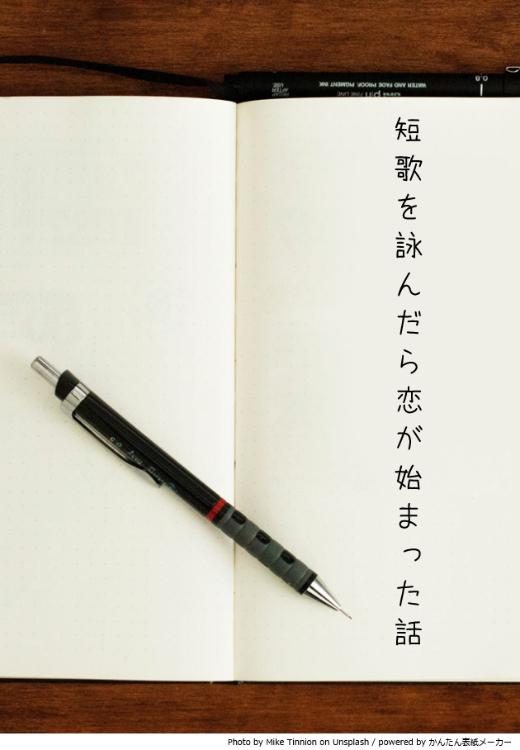 短歌を詠んだら恋が始まった話
WATER AND FADE PROOF, PIGMENT INK
pin FINE LINE
0.8
0.5
Photo by Mike Tinnion on Unsplash / powered by かんたん表紙メーカー